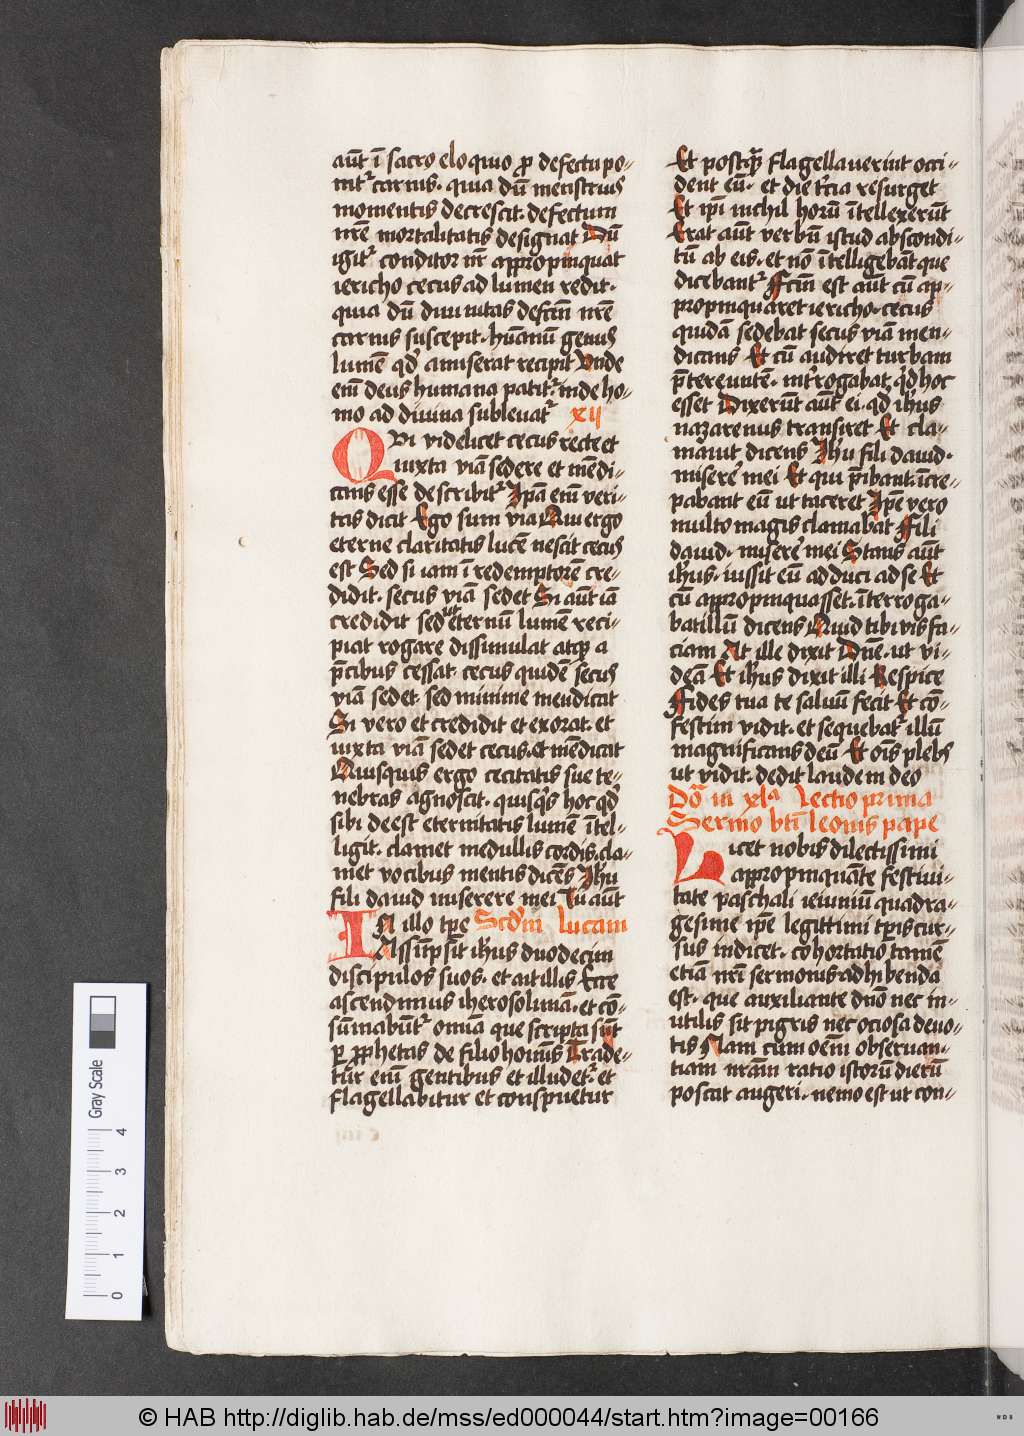 aūt ī sacro eloquio ꝓ defectu po-
nitᷣ carnis. quia dū menstruis
momentis decrescit. defectum
nr̄e mortalitatis designat Dū
igitᷣ conditor nr̄ appropinquat
iericho cecus ad lumen redit.
quia dū diuinitas defcm̄ nr̄e
carnis suscepit. hūanū genus
lumē qd̓ amiserat recipit Vnde
em̄ deus humana patitᷣ. inde ho-
mo ad diuina subleuatᷣ xij
QVi videlicet cecus recte et
iuxta viā sedere et mēdi-
cans esse describitᷣ Ip̄a em̄ veri-
tas dicit Ego sum via Qui ergo
eterne claritatis lucē nescit cecus
est Sed si iam ī redemptorē cre-
didit. secus viā sedet Si aūt iā
credidit sed ut eternū lumē reci-
piat rogare dissimulat atqꝫ a
p̄cibus cessat. cecus quidē secus
viā sedet. sed minime mendicat
Si vero et credidit et exorat. et
iuxta viā sedet cecus. et mēdicat
Quisquis ergo cecitatis sue te-
nebras agnoscit. quisqͥs hoc qd̓
sibi deest eternitatis lumē ītel-
ligit. clamet medullis cordis. cla-
met vocibus mentis dicēs Ihū
fili dauid miserere mei Tu aūt
IN illo tp̄e Scd̓m lucam
Assūpsit ih̄us duodecim
discipulos suos. et ait illis Ecce
ascendimus iherosolimā. et cō-
sūmabūtᷣ om̄ia que scripta sūt
ꝑ ꝓphetas de filio hoīnis Trade-
tur em̄ gentibus et illudetᷣ. et
flagellabitur et conspuetur
Et postqꝫ flagellauerint occi-
dent eū. et die t̓cia resurget
Et ip̄i nichil horū ītellexerūt
Erat aūt verbū istud abscondi-
tū ab eis. et nō ītelligebāt que
dicebantᷣ Fcm̄ est aūt cū ap-
propinquaret iericho. cecus
quidā sedebat secus viā men-
dicans Et cū audiret turbam
p̄tereuntē. int̓rogabat. qd̓ hoc
esset Dixerūt aūt ei. qd̓ ih̄us
nazarenus transiret Et cla-
mauit dicens Ihū fili dauid.
miserer̄ mei Et qui p̄ibant. īcre-
pabant eū ut taceret Ip̄e vero
multo magis clamabat Fili
dauid. miserer̄ mei Stans aūt
ih̄us. iussit eū adduci ad se Et
cū appropinquasset. īterroga-
bat illū dicens Quid tibi vis fa-
ciam At ille dixit Dn̄e. ut vi-
deā Et ih̄us dixit illi Respice
Fides tua te saluū fecit Et cō-
festim vidit. et sequebatᷣ illū
magnificans deū Et oīs plebs
ut vidit. dedit laudem deo
Dōa iii xlᵃ Lectio prima
Sermo bt̄i leonis pape
Licet nobis dilectissimi
appropinquāte festiui-
tate paschali ieiuniū quadra-
gesime ip̄e legittimi tꝑis cur-
sus indicet. cohortatio tamē
etiā nr̄i sermonis adhibenda
est. que auxiliante dn̄o nec in-
utilis sit pigris nec ociosa deuo-
tis Nam cum oēm obseruan-
tiam nr̄am ratio istorū dierū
poscat augeri. nemo est ut con-
Gray Scale
4
3
2
1
0
© HAB http://diglib.hab.de/mss/ed000044/start.htm?image=00166